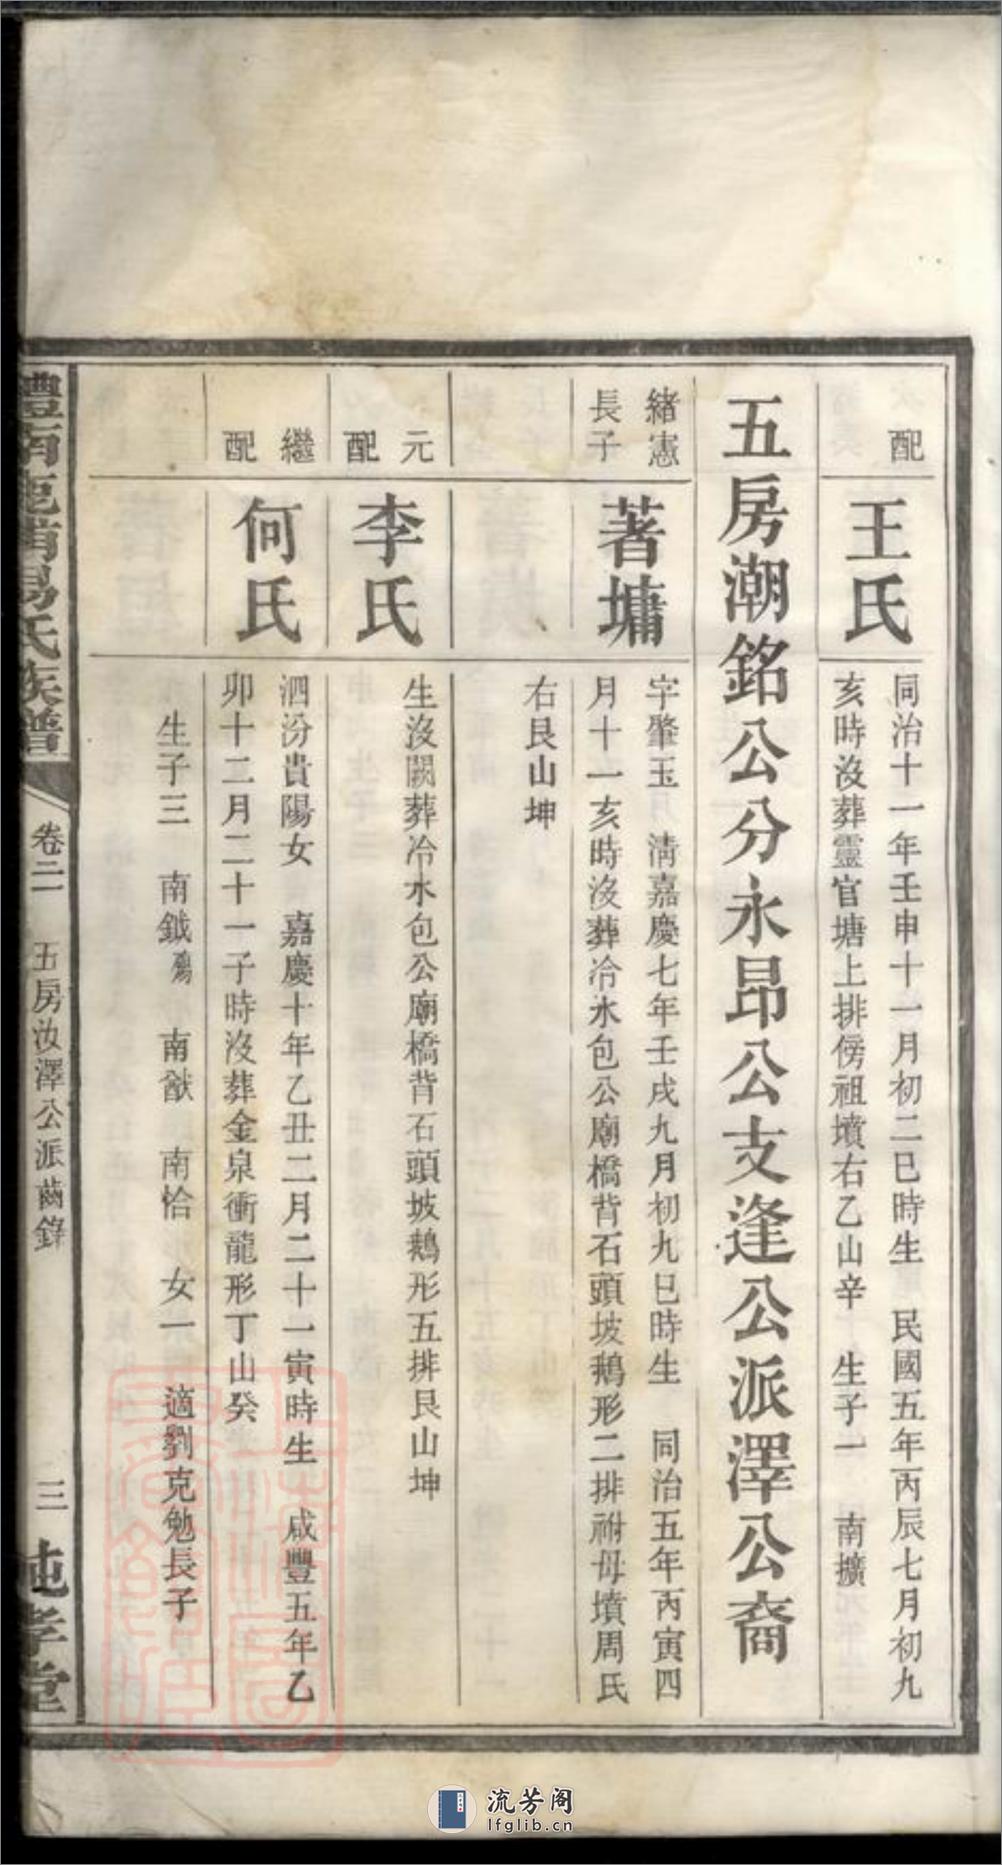 配
王氏
同治十一年壬申十一月初二巳時生　民國五年丙辰七月初九
亥時沒葬靈官塘上排傍祖墳右乙山辛　生子一　南擴
五房潮銘公分永昂公支逢公派澤公裔
緒憲
長子
著墉
字肇玉　清嘉慶七年壬戌九月初九巳時生　同治五年丙寅四
月十一亥時沒葬冷水包公廟橋背石頭坡鵝形二排祔母墳周氏
右艮山坤
元
配
李氏
生沒闕葬冷水包公廟橋背石頭坡鵝形五排艮山坤
繼
配
何氏
泗汾貴陽女　嘉慶十年乙丑二月二十一寅時生　咸豐五年乙
卯十二月二十一子時沒葬金泉衝龍形丁山癸
生子三　南鉞殤　南猷　南恰　女一　適劉克勉長子
南
易氏族譜
卷二
五房汝澤公派齒錄
三
孝堂
流芳阁
lfglib.cn